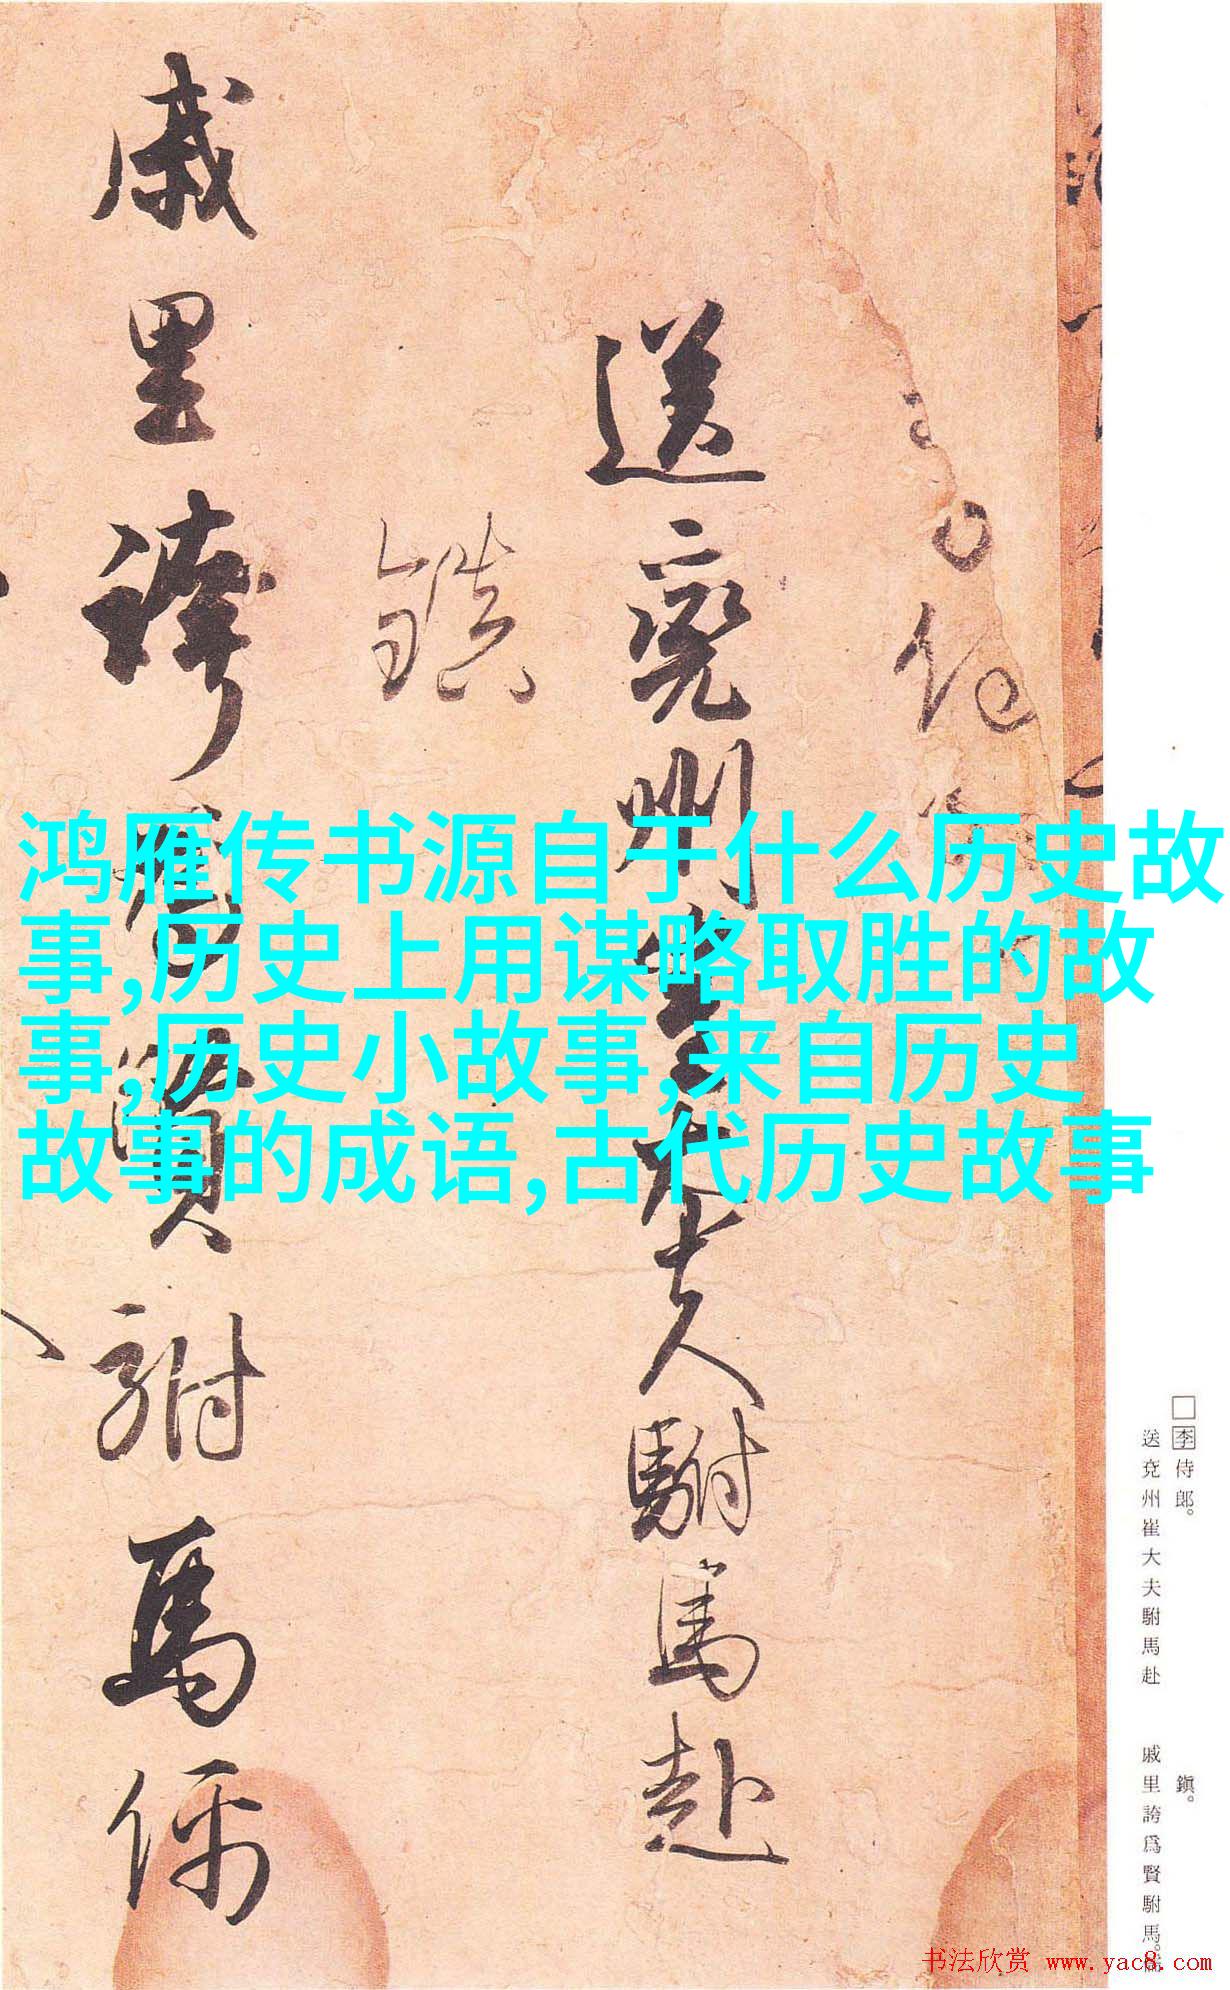 鸿雁传书源自于什么历史故
事,历史上用谋略取胜的故
事,历史小故事,来自历史
故事的成语,古代历史故事
送兖州崔大夫駙馬赴
鎮
戚里誇為賢駙馬儒
□李侍郎。
送兖州崔大夫駙馬赴
鎭。
戚里誇爲賢駙馬。儒
书法欣赏 www.yac8.com